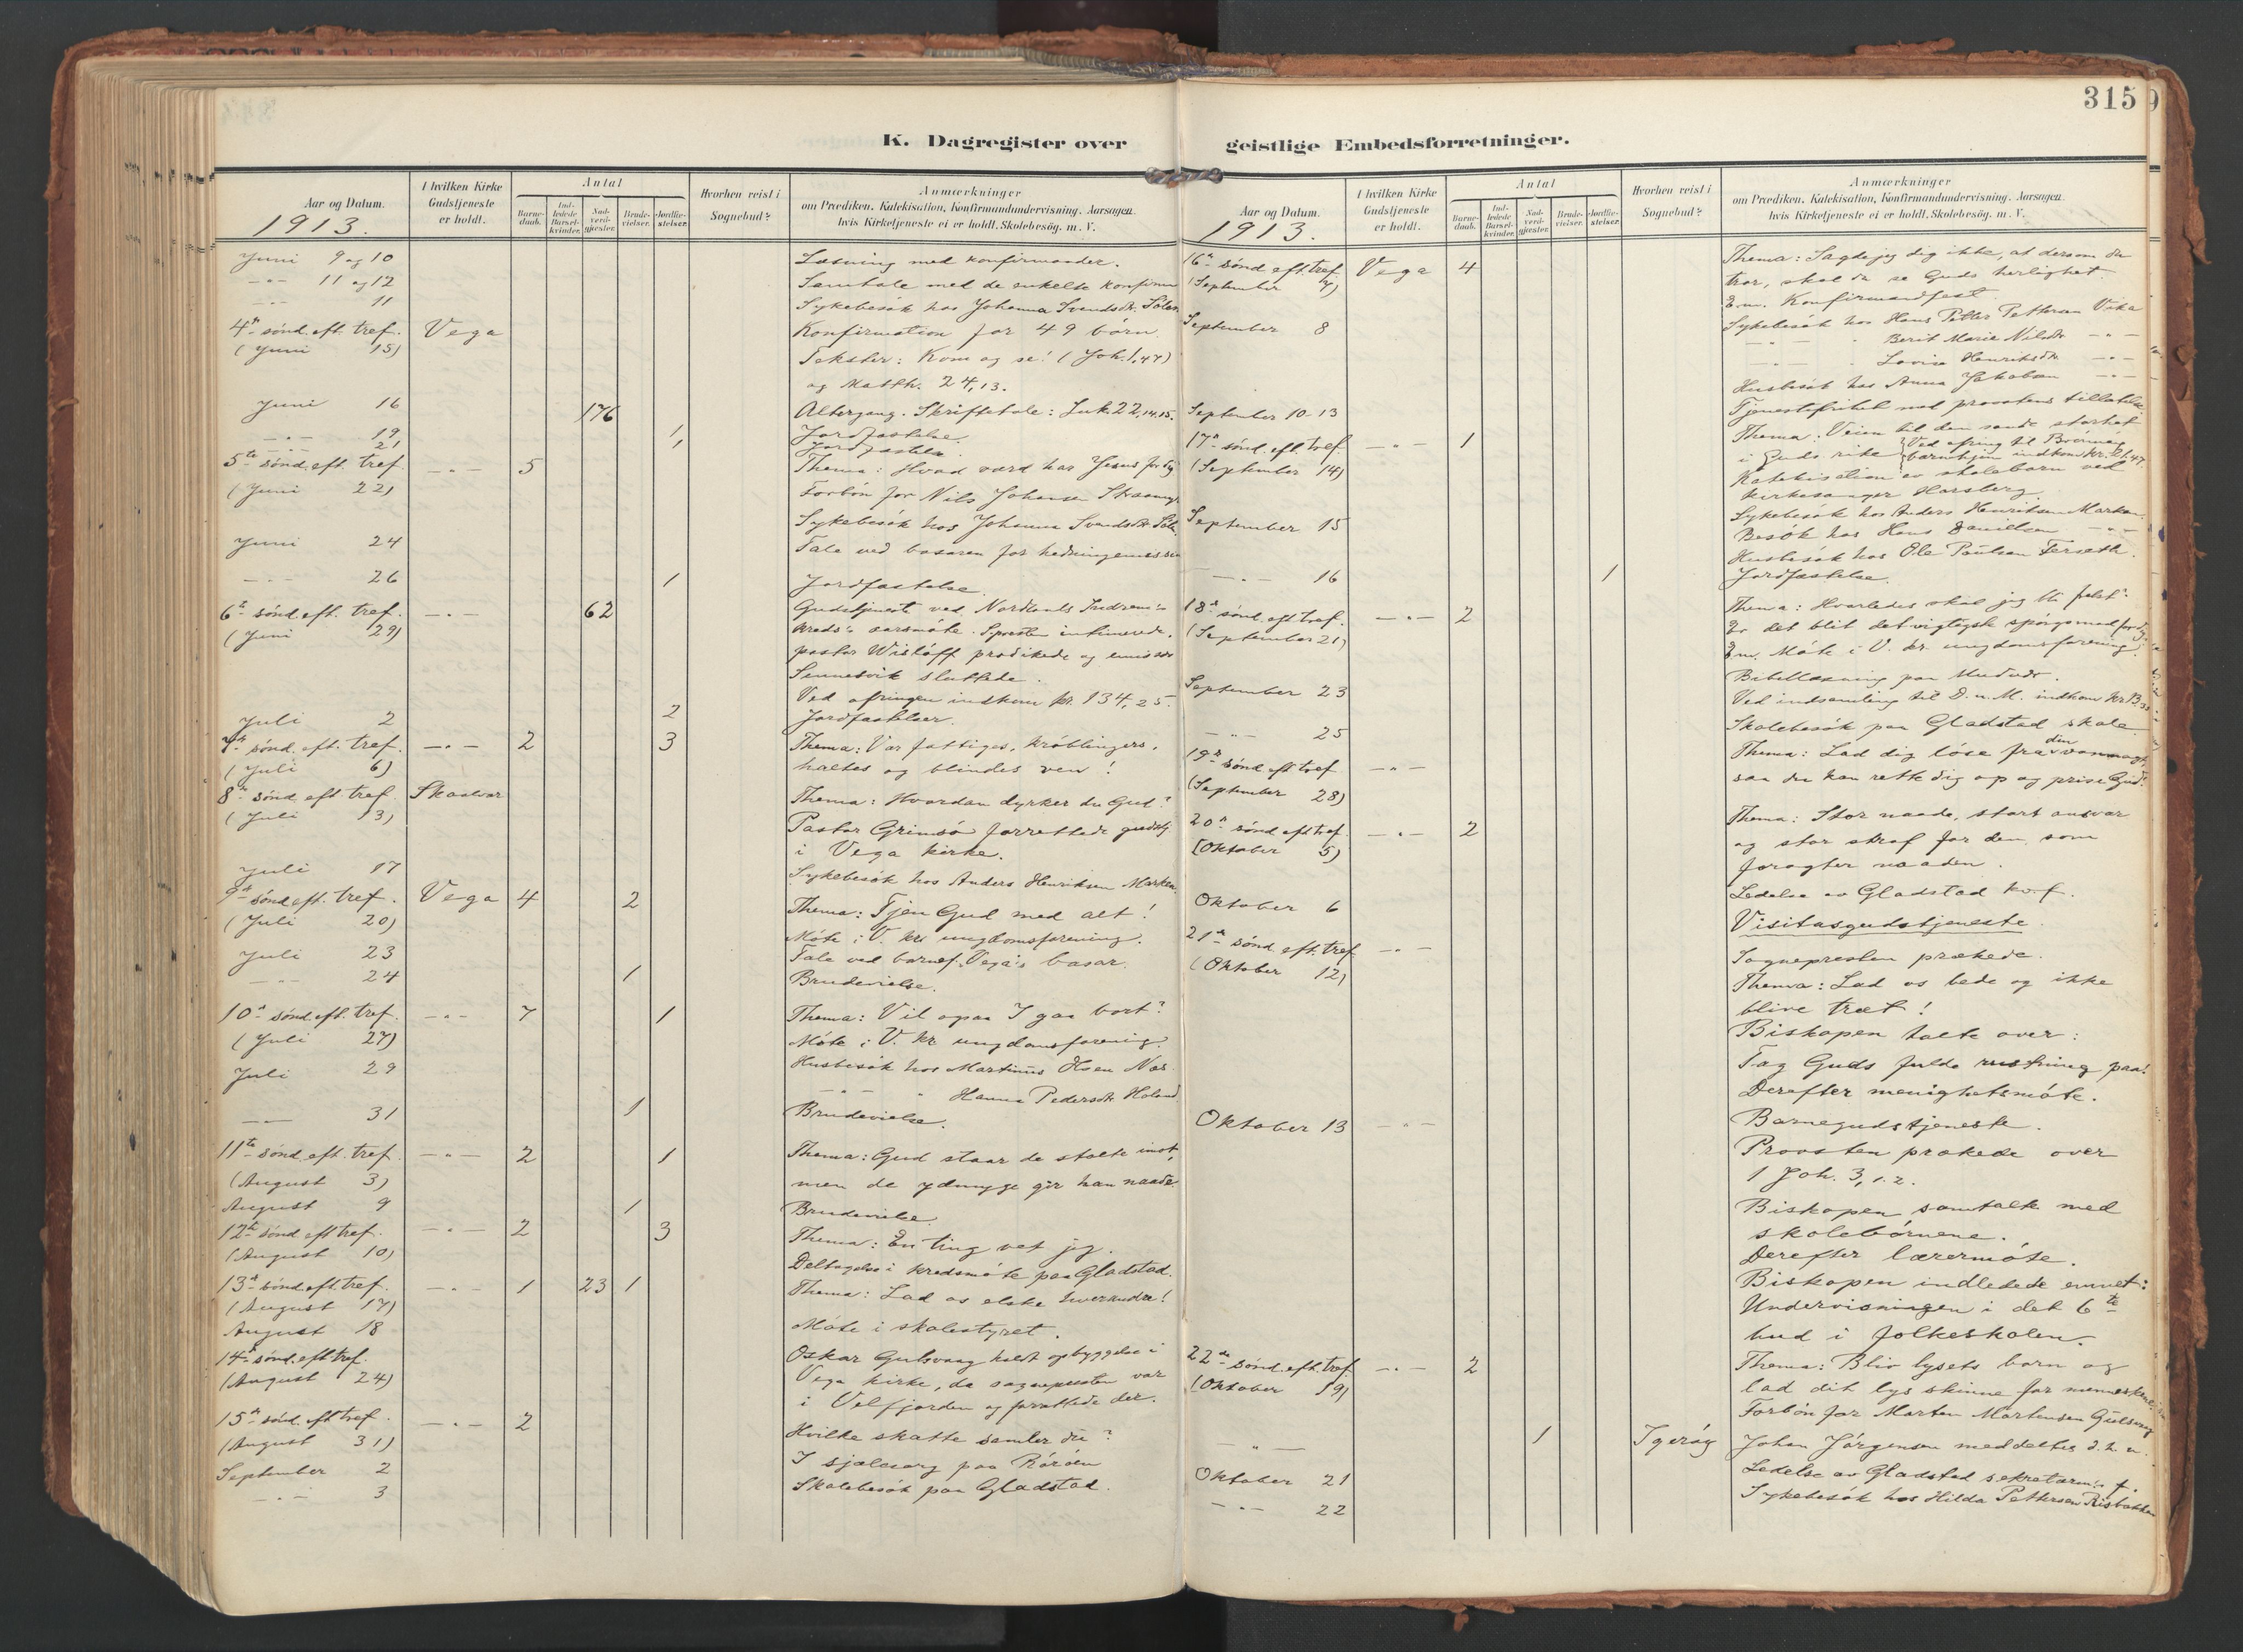 315
K. Dagregister over geistlige Embedsforretninger.
Aar og Datum.
1913.
I hvilken Kirke Gudstjeneste er holdt.
Antal
Barnedaab.
Indledede Barselkvinder.
Nadverdgjester.
Brudevielser.
Jordfæstelser.
Hvorhen reist i Sognebud?
Anmærkninger
om Prædiken, Katekisation, Konfirmandundervisning, Aarsagen
hvis Kirketjeneste ei er holdt, Skolebesög, m. V.
Juni 9 og 10 Læsning med konfirmander.
-"- 11 og 12 Samtale med de enkelte konfirm
-"- 11 Sykebesök hos Johanna Svendsdr.
4de sönd. eft. tref. Vega Konfirmation for 49 börn.
(Juni 15) Tekster: Kom og se! (Joh. 1,47)
og Matth. 24,13.
Juni 16 176 Altergang. Skriftetale: Luk. 22,14.15.
-"- 19 1 Jordfæstelse.
-"- 21 1 Jordfæstelse
5te sönd. eft. tref. -"- 5 Thema: Hvad værd har Jesus for dig
(Juni 22) Forbön for Nils Johansen
Sykebesök hos Johanna Svendsdr.
Juni 24 Tale ved basaren for hedningemission
-"- 26 1 Jordfæstelse.
6te sönd. eft. tref. -"- 62 Gudstjeneste ved Nordlands Indrem.s
(Juni 29) kreds's aarsmöte. S.presten intimerede,
pastor Wislöff prædikede og emissær
Sennesvik sluttede.
Ved ofringen indkom kr. 134,25.
Juli 2 2 Jordfæstelser.
7de sönd. eft. tref. -"- 2 3 Thema: Vær fattiges, kröblingers,
(Juli 6) haltes og blindes ven!
8de sönd. eft. tref. Skaalvær Thema: Hvordan dyrker du Gud?
(Juli 13) Pastor Grimsö forrettede gudstj
i Vega kirke.
Juli 17 Sykebesök hos Anders Henriksen Marken.
9de sönd. eft. tref. Vega 4 2 Thema: Tjen Gud med alt!
(Juli 20) Möte i V. kr. ungdomsforening.
Juli 23 Tale ved barnef. Vega's basar.
-"- 24 1 Brudevielse.
10de sönd. eft. tref. -"- 7 1 Thema: Vil ogsaa I gaa bort?
(Juli 27) Möte i V. kr ungdomsforening.
Juli 29 Husbesök hos Martinus Hsen Næs
-"- " Hanna Pedersdr. Holand
-"- 31 1 Brudevielse.
11te sönd. eft. tref. -"- 2 1 Thema: Gud staar de stolte imot,
(August 3) men de ydmyge gir han naade.
August 9 1 Brudevielse.
12te sönd. eft tref. -"- 2 3 Thema: En ting vet jeg.
(August 10) Deltagelse i kredsmöte paa Gladstad.
13de sönd. eft. tref. -"- 1 23 1 Thema: Lad os elske hverandre!
(August 17)
August 18 Möte i skolestyret.
14de sönd. eft tref. Oskar Gulsvaag holdt opbyggelse i
(August 24) Vega kirke, da sognepresten var
i Velfjorden og forrettede der.
15de sönd. eft tref. -"- 2 Hvilke skatte samler du?
(August 31)
September 2 I sjælesorg paa Röröen
-"- 3 Skolebesök paa Gladstad.
Aar og Datum.
1913.
I hvilken Kirke Gudstjeneste er holdt.
Antal
Barnedaab.
Indledede Barselkvinder.
Nadverdgjester.
Brudevielser.
Jordfæstelser.
Hvorhen reist i Sognebud?
Anmærkninger
om Prædiken, Katekisation, Konfirmandundervisning, Aarsagen
hvis Kirketjeneste ei er holdt, Skolebesög, m. V.
16de sönd. eft. tref. Vega 4 Thema: Sagde jeg dig ikke, at dersom du
(September 7) tror, skal du se Guds herlighet.
E.m. Konfirmandfest.
September 8 Sykebesök hos Hans Petter Pettersen Vika
-"- " Berit Marie Nilsdr. -"-
-"- " Lovise Henriksdr. -"-
Husbesök hos Anna Jakobsen -"-
September 10-13 Tjenestefrihet med provstens tillatelse.
17de sönd. eft. tref. -"- 1 Thema: Veien til den sande storhet
(September 14) i Guds rike. Ved ofring til
barnehjem indkom kr.
Katekisation av skolebarn ved
kirkesanger Horsberg.
September 15 Sykebesök hos Anders Henriksen Marken.
Besök hos Hans Danielsen -"-
Husbesök hos Ole Paulsen
-"- 16 1 Jordfæstelse.
18de sönd. eft tref. -"- 2 Thema: Hvorledes skal jeg bli frelst?
(September 21) Er det blit det vigtigste spörgsmaal for dig?
E.m. Möte i V. kr. ungdomsforening.
September 23 Bibellæsning paa
Ved indsamling til D. n. M. indkom kr.
-"- 25 Skolebesök paa Gladstad skole.
19de sönd. eft tref -"- Thema: Lad dig löse fra den vanmagt,
(September 28) saa du kan rette dig op og prise Gud.
20de sönd. eft tref. -"- 2 Thema: Stor naade, stort ansvar
(Oktober 5) og stor straf for den, som
foragter naaden.
Oktober 6 Ledelse av Gladstad kv.f.
21de sönd. eft. tref -"- Visitasgudstjeneste.
(Oktober 12) Sognepresten prækede.
Thema: Lad os bede og ikke
blive træt!
Biskopen talte over:
Tag Guds fulde rustning paa!
Derefter menighetsmöte.
Oktober 13 -"- Barnegudstjeneste.
Provsten prækede over
1 Joh. 3,1.2.
Biskopen samtalte med
skolebörnene.
Derefter lærermöte.
Biskopen indledede emnet:
Undervisningen i det 6te
bud i folkeskolen.
22de sönd. eft. tref. -"- 2 Thema: Bliv lysets barn og
(Oktober 19) lad dit lys skinne for menneskene!
Forbön for Morten Mortensen
-"- 1 Igeröy Johan Jörgensen meddeltes d. h. n.
Oktober 21 Ledelse av Gladstad
-"- 22 Sykebesök hos Hilda Pettersen Risbakken